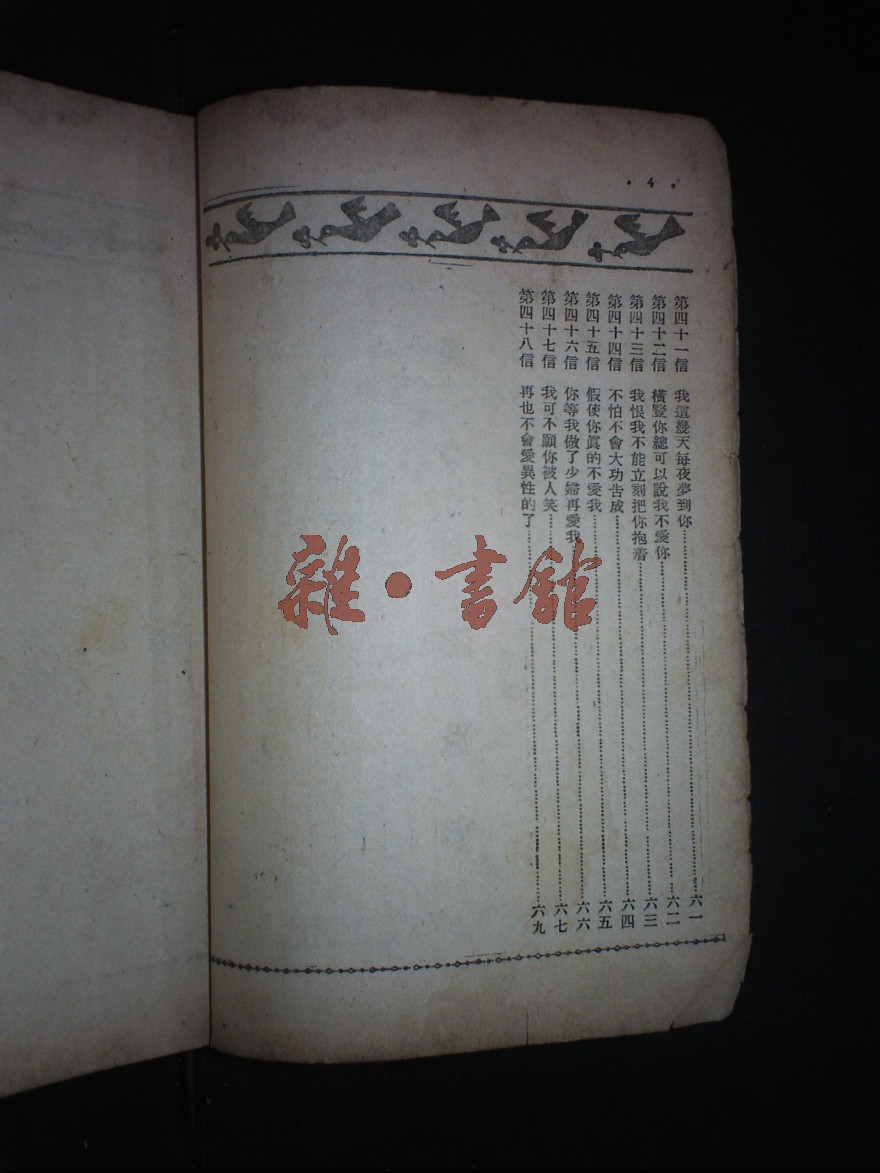 • 4 •
第四十一信 我這幾天每夜夢到你……六一
第四十二信 橫豎你總可以說我不愛你……六二
第四十三信 我恨我不能立刻把你抱着……六三
第四十四信 不怕不會大功告成……六四
第四十五信 假使你眞的不愛我……六五
第四十六信 你等我做了少婦再愛我……六六
第四十七信 我可不願你被人笑……六七
第四十八信 再也不會愛異性的了……六九
雜•書館